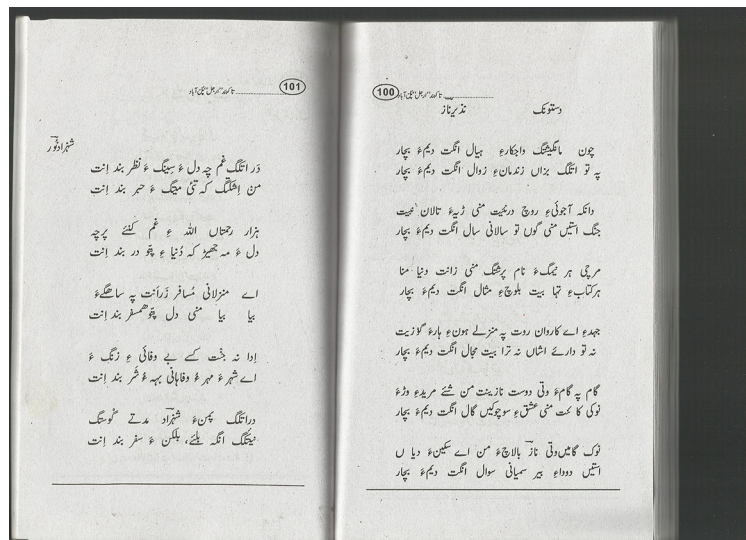 100
دستونک نذیر ناز
چون مانگیشتگ واجکارءِ ہیال انگت دیمءَ بچار
پہ تو اتلگ بزاں زندمانءِ زوال انگت دیمءَ بچار
دانکہ آجوئیءِ روچ درنئیت منی ژیہءَ تالان نہ بیت
جنگ استیں منی گوں تو سالانی سال انگت دیمءَ بچار
مرچی ہر نیمگءَ نام پرشتگ منی زانت ودنیا منا
ہر کتابءِ تہا بیت بلوچءِ مثال انگت دیمءَ بچار
جہدءِ اے کاروان روت پہ منزلے ہونءِ ہارءَ گوزیت
نہ تو دارئے اشاں نہ ترا بیت مجال انگت دیمءَ بچار
گام پہ گامءَ وتی دوست نازینت من شئے مریدءِ وڑءَ
نوکی کا ئت منی عشقءِ سوچوکیں گال انگت دیمءَ بچار
نوک گامیں وتی ناز بالاچءَ من اے سکینءَ دیا ں
استیں دوداءِ بیر سمیانی سوال انگت دیمءَ بچار
101
شہزاد نُور
دَر اتلگ غم چہ دل ءَ سِینگ ءَ نظر بند اِنت
من اِشکتگ کہ تئی میتگ ءَ حبر بند اِنت
ہزار رحمتاں اللہ ءِ غم کُنئے پرچہ
دل ءَ مہ جھیڑ کہ دُنیا ءِ پتو در بند اِنت
اے منزلانی مُسافر زَرانت پہ ساھگےءَ
بیا بیا منی دل پتو ھمسفر بند اِنت
اِدا نہ جنت کسے بے وفائی ءِ زنگ ءَ
اے شہر ءَ مہر ءُ وفاہانی بہہ ءُ شَر بند اِنت
دراتلگ پمن ءَ شہزاد مدتے گوستگ
نیتلگ انگہ بلئے، بلکن ءَ سفر بند اِنت